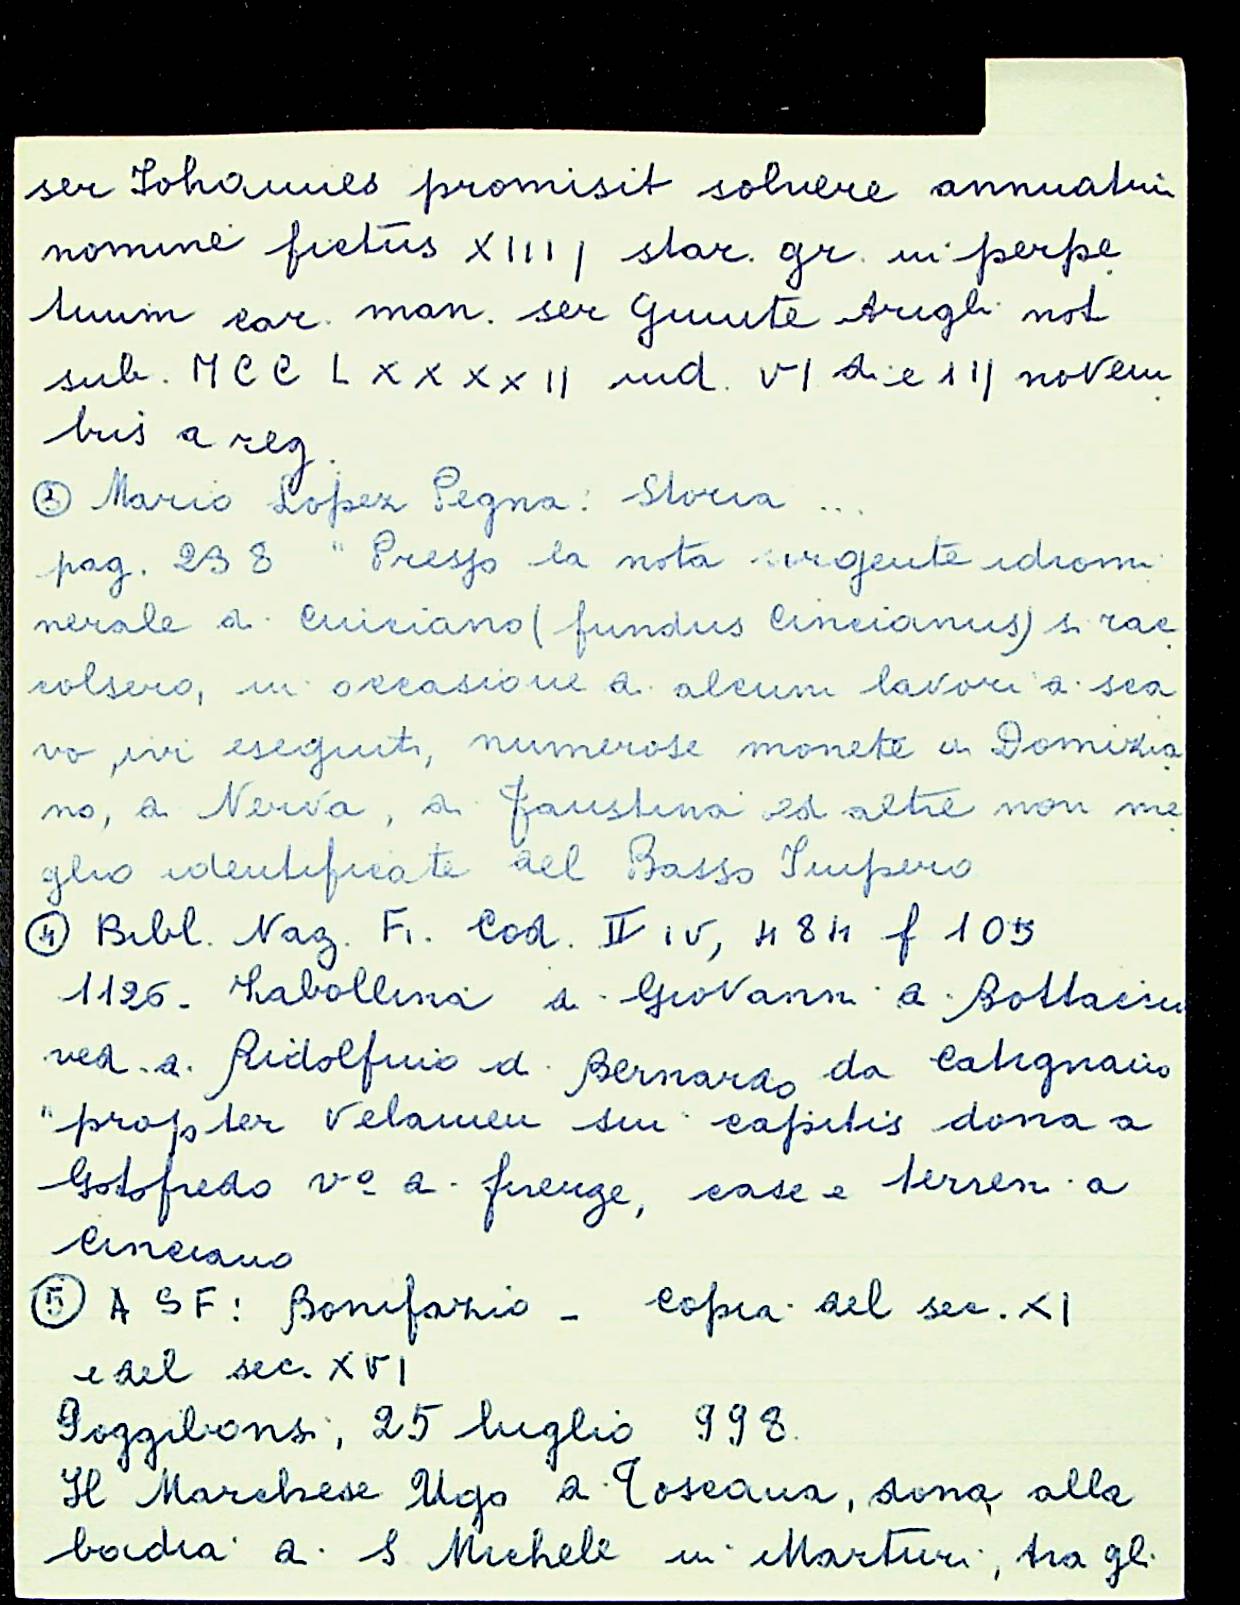 ser Iohannes promisit solvere annuatim
nomine fictus XIIII star. gr. in perpe
tuum car. man. ser Giunte Arigli not
sub. MCCLXXXXII ind. VI die III novem
bris a reg.
③ Mario Lopez Pegna: Storia ...
pag. 238 " Presso la nota surgente idromi
nerale di Cinciano (fundus Cincianus) si rac
colsero, in occasione di alcuni lavori di sca
vo, ivi eseguiti, numerose monete di Domizia
no, di Nerva, di Faustina ed altre non me
glio identificate del Basso Impero
④ Bibl. Naz. Fi. Cod. II IV, 484 f 105
1126 - Zabollina di Giovanni di Bottacin
ved. di Ridolfino di Bernardo da Catignano
"propter velamen sui capitis dona a
Gotofredo vº di Firenze, case e terreni a
Cinciano
⑤ ASF: Bonifazio - Copia del sec. XI
e del sec. XVI
Poggibonsi, 25 luglio 998.
Il Marchese Ugo di Toscana, dona alla
badia di S Michele in Marturi, tra gli